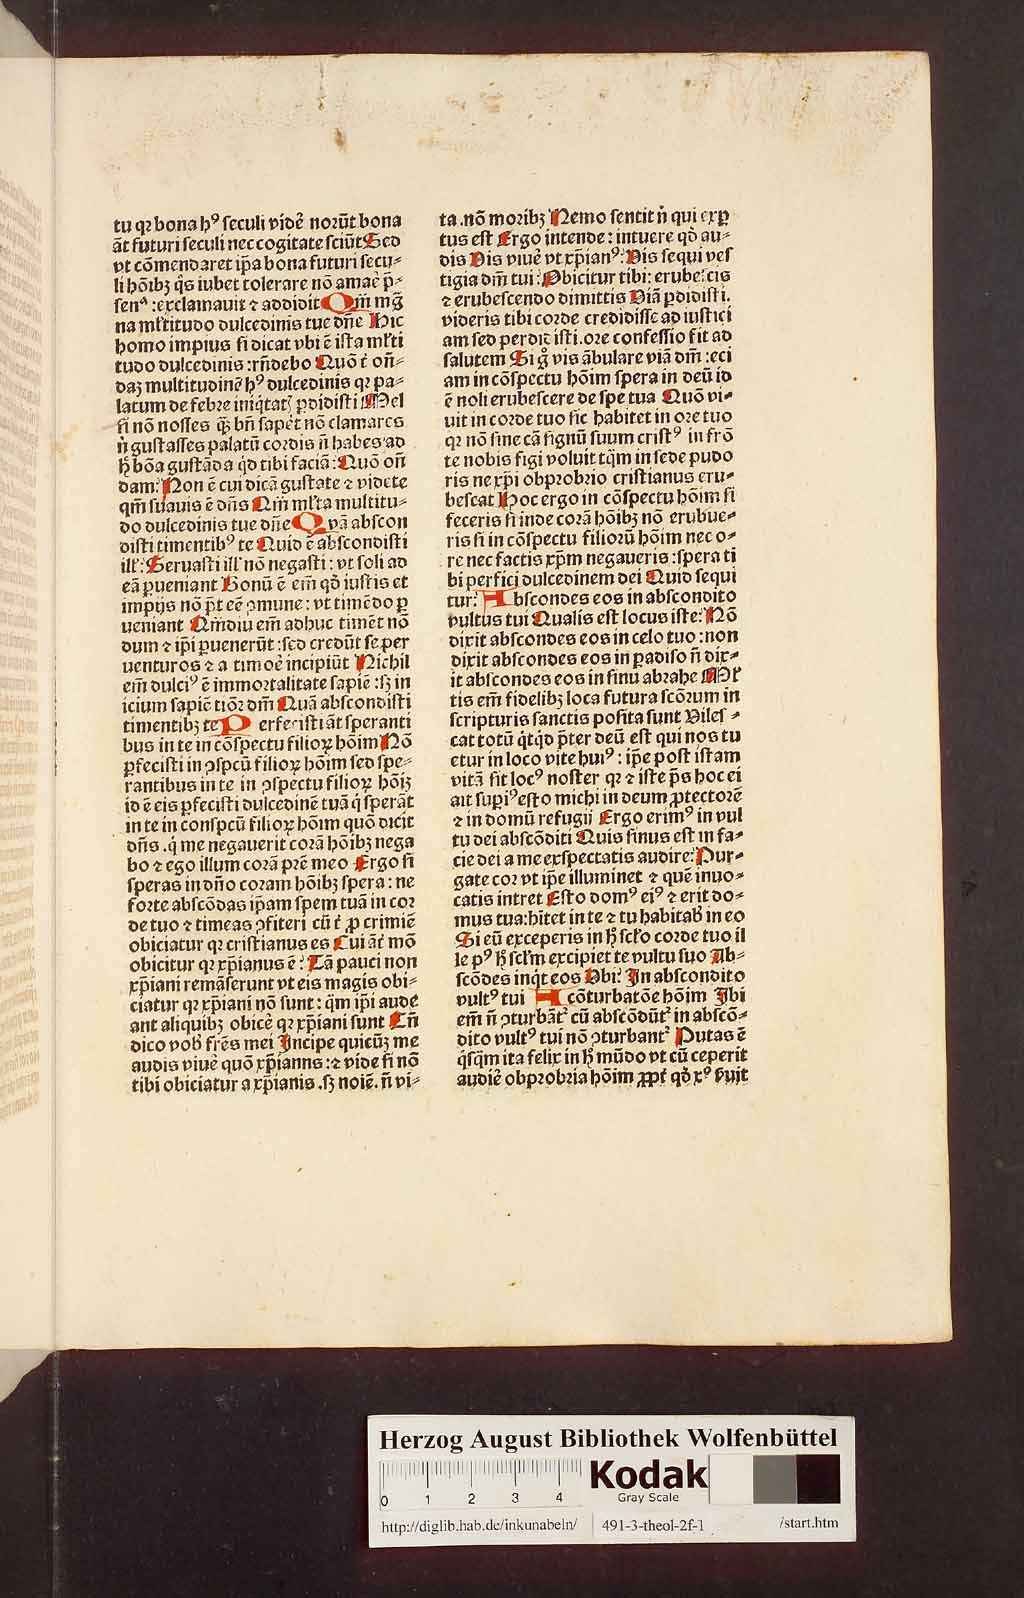 tu qꝛ bona hꝰ seculi videt̉ norūt bona
āt futuri seculi nec cogitate sciūt Sed
vt cōmendaret ip̄a bona futuri secu-
li hōibꝫ q̄s iubet tolerare nō amare p̄-
sentᵃ : exclamauit ⁊ addidit Qm̄ mḡ
na ml̄titudo dulcedinis tue dn̄e Hic
homo impius si dicat vbi ē ista ml̄ti
tudo dulcedinis : rn̄debo Quō t̄ on̄-
daꝫ multitudinē hꝰ dulcedinis qꝛ pa-
latum de febre iniq̇tatꝭ ꝑdidisti Mel
si nō nosses q̄ꝫ bn̄ sapet nō clamares
n̄ gustasses palatū cordis n̄ habes ad
h̨ bōa gustāda q̇d tibi faciā : Quō on̄
dam: Non ē cui dicā gustate ⁊ videte
qm̄ suauis ē dn̄s Qm̄ ml̄ta multitu-
do dulcedinis tue dn̄e Qvā abscon
disti timentibꝰ te Quid ē abscondisti
ill̄: Seruasti ill̄ nō negasti : vt soli ad
eā ꝑueniant Bonū ē em̄ qd̄ iustis et
impijs nō p̄t eē ꝯmune : vt timēdo ꝑ
ueniant Qm̄diu em̄ adhuc timēt nō
dum ⁊ ip̄i ꝑuenerūt : sed credūt se per
uenturos ⁊ a timoē incipiūt Nichil
em̄ dulciꝰ ē immortalitate sapiē : sꝫ in
icium sapiē tioꝛ dm̄ Quā abscondisti
timentibꝫ te P erfecisti āt speranti
bus in te in cōspectu filioꝝ hōim Nō
ꝑfecisti in ꝯspcū filioꝝ hōim sed spe-
rantibus in te in ꝯspectu filioꝝ hōiꝫ
id ē eis ꝑfecisti dulcedinē tuā q̇ sperāt
in te in conspcū filioꝝ hōim quō dicit
dn̄s .q̇ me negauerit corā hōibꝫ nega
bo ⁊ ego illum corā pr̄e meo Ergo si
speras in dn̄o coram hōibꝫ spera : ne
forte abscōdas ip̄am spem tuā in cor
de tuo ⁊ timeas ꝯfiteri cū t̄ ꝓ crimiē
obiciatur qꝛ cristianus es Cui āt̄ mō
obicitur qꝛ xp̄ianus ē : Tā pauci non
xp̄iani remāserunt vt eis magis obi-
ciatur qꝛ xp̄iani nō sunt : q̄m ip̄i aude
ant aliquibꝫ obicē qꝛ xp̄iani sunt Tn̄
dico vob̄ fr̄es mei Incipe quicūꝫ me
audis viuē quō xp̄ianns : ⁊ vide si nō
tibi obiciatur a xp̄ianis .sꝫ noīe. n̄ vi-
ta .nō moribꝫ Nemo sentit n̄ qui exꝑ
tus est Ergo intende : intuere qd̄ au-
dis Uis viuē vt xp̄ianꝰ: Uis sequi ves
tigia dm̄ tui : Obicitur tibi : erubescis
⁊ erubescendo dimittis Uiā ꝑdidisti.
videris tibi corde credidisse ad iustici
am sed perdidisti .ore confessio fit ad
salutem Si g̊ vis ābulare viā dm̄ : eci
am in cōspectu hōim spera in deū id
ē noli erubescere de spe tua Quō vi-
uit in corde tuo sic habitet in ore tuo
qꝛ nō sine cā signū suum cristꝰ in frō
te nobis figi voluit tq̄m in sede pudo
ris ne xp̄i obprobrio cristianus eru-
bescat Hoc ergo in cōspectu hōim si
feceris si inde corā hōibꝫ nō erubue-
ris si in cōspectu filiorū hōim nec o-
re nec factis xp̄m negaueris : spera ti
bi perfici dulcedinem dei Quid sequi
tur: Abscondes eos in abscondito
vultus tui Qualis est locus iste: Nō
dixit abscondes eos in celo tuo : non
dixit abscondes eos in ꝑadiso n̄ dix-
it abscondes eos in sinu abrahe Ml̄
tis em̄ fidelibꝫ loca futura scōrum in
scripturis sanctis posita sunt Viles-
cat totū q̇tq̇d p̄ter deū est qui nos tu
etur in loco vite huiꝰ : ip̄e post istam
vitā sit locꝰ noster qꝛ ⁊ iste p̄s hoc ei
ait supiꝰ esto michi in deum ꝓtectorē
⁊ in domū refugij Ergo erimꝰ in vul
tu dei abscōditi Quis sinus est in fa-
cie dei a me exspectatis audire: Pur-
gate cor vt ip̄e illuminet ⁊ quē inuo-
catis intret Esto domꝰ eiꝰ ⁊ erit do-
mus tua : hītet in te ⁊ tu habitab̄ in eo
Si eū exceperis in h̨ scl̄o corde tuo il
le pꝰ h̨ scl̄m excipiet te vultu suo Ab-
scōdes inq̇t eos Ubi: In abscondito
vultꝰ tui A cōturbatōe hōim Ibi
em̄ n̄ ꝯturbāt᷑ cū abscōdūt᷑ in abscō-
dito vultꝰ tui nō ꝯturbant᷑ Putas ē
q̇sq̄m ita felix in h̨ mūdo vt cū ceperit
audiē obprobria hōim ꝓpt̄ qd̄ xꝰ ẜuit
Herzog August Bibliothek Wolfenbüttel
0 1 2 3 4
Kodak
Gray Scale
http://diglib.hab.de/inkunabeln/ 491-3-theol-2f-1 /start.htm